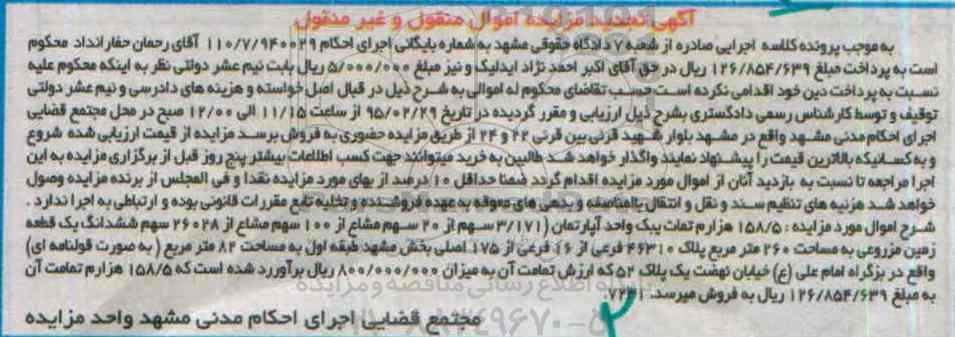 آگهی تجدید مزایده اموال منقول و غیر منقول
به موجب پرونده کلاسه اجرایی صادره از شعبه ۷ دادگاه حقوقی مشهد به شماره بایگانی اجرای احکام ۱۱۰/۷/۹۴۰۰۲۹ آقای رحمان حفار انداد محکوم
است به پرداخت مبلغ ۱۲۶/۸۵۴/۶۳۹ ریال در حق آقای اکبر احمد نژاد ایدلیک و نیز مبلغ ۵/۰۰۰/۰۰۰ ریال بابت نیم عشر دولتی نظر به اینکه محکوم علیه
نسبت به پرداخت دین خود اقدامی نکرده است حسب تقاضای محکوم له اموالی به شرح ذیل در قبال اصل خواسته و هزینه های دادرسی و نیم عشر دولتی
توقیف و توسط کارشناس رسمی دادگستری بشرح ذیل ارزیابی و مقرر گردیده در تاریخ ۹۵/۰۲/۲۹ از ساعت ۱۱/۱۵ الی ۱۲/۰۰ صبح در محل مجتمع قضایی
اجرای احکام مدنی مشهد واقع در مشهد بلوار شهید قرنی بین قرنی ۲۲ و ۲۴ از طریق مزایده حضوری به فروش برسد مزایده از قیمت ارزیابی شده شروع
و به کسانیکه بالاترین قیمت را پیشنهاد نمایند واگذار خواهد شد طالبین به خرید میتوانند جهت کسب اطلاعات بیشتر پنج روز قبل از برگزاری مزایده به این
اجرا مراجعه تا نسبت به بازدید آنان از اموال مورد مزایده اقدام گردد ضمنا حداقل ۱۰ درصد از بهای مورد مزایده نقدا و فی المجلس از برنده مزایده وصول
خواهد شد هزینه های تنظیم سند و نقل و انتقال بالمناصفه و بدهی های معوقه به عهده فروشنده و تخلیه تابع مقررات قانونی بوده و ارتباطی به اجرا ندارد .
شرح اموال مورد مزایده : ۱۵۸/۵ هزارم تمات یک واحد آپارتمان (۳/۱۷۱ سهم از ۲۰ سهم مشاع از ۱۰۰ سهم مشاع از ۲۶۰۲۸ سهم ششدانگ یک قطعه
زمین مزروعی به مساحت ۲۶۰ متر مربع پلاک ۴۶۳۱۰ فرعی از ۱۶ فرعی از ۱۷۵ اصلی بخش مشهد طبقه اول به مساحت ۸۲ متر مربع ( به صورت قولنامه ای)
واقع در بزرگراه امام علی (ع) خیابان نهضت یک پلاک ۵۲ که ارزش تمامت آن به میزان ۸۰۰/۰۰۰/۰۰۰ ریال برآورد شده است که ۱۵۸/۵ هزارم تمامت آن
به مبلغ ۱۲۶/۸۵۴/۶۳۹ ریال به فروش میرسد. ۷۲۳۱
مجتمع قضایی اجرای احکام مدنی مشهد واحد مزایده